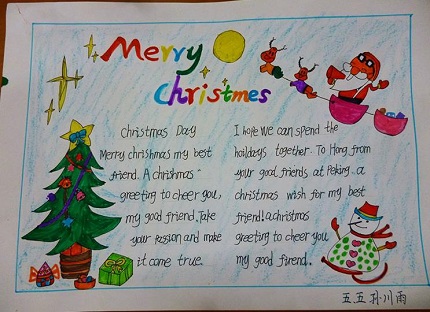 Merry
Christmes
Christmas Day
Merry chrishmas my best
friend. A chrishmas
greeting to cheer you,
my good friend. Take
your passion and make
it come true.
I hope we can spend the
hoildays together. To Hong from
your good friends at Peking. a
christmas wish for my best
friend! a christmas
greeting to cheer you
my good firend.
五五孙川雨